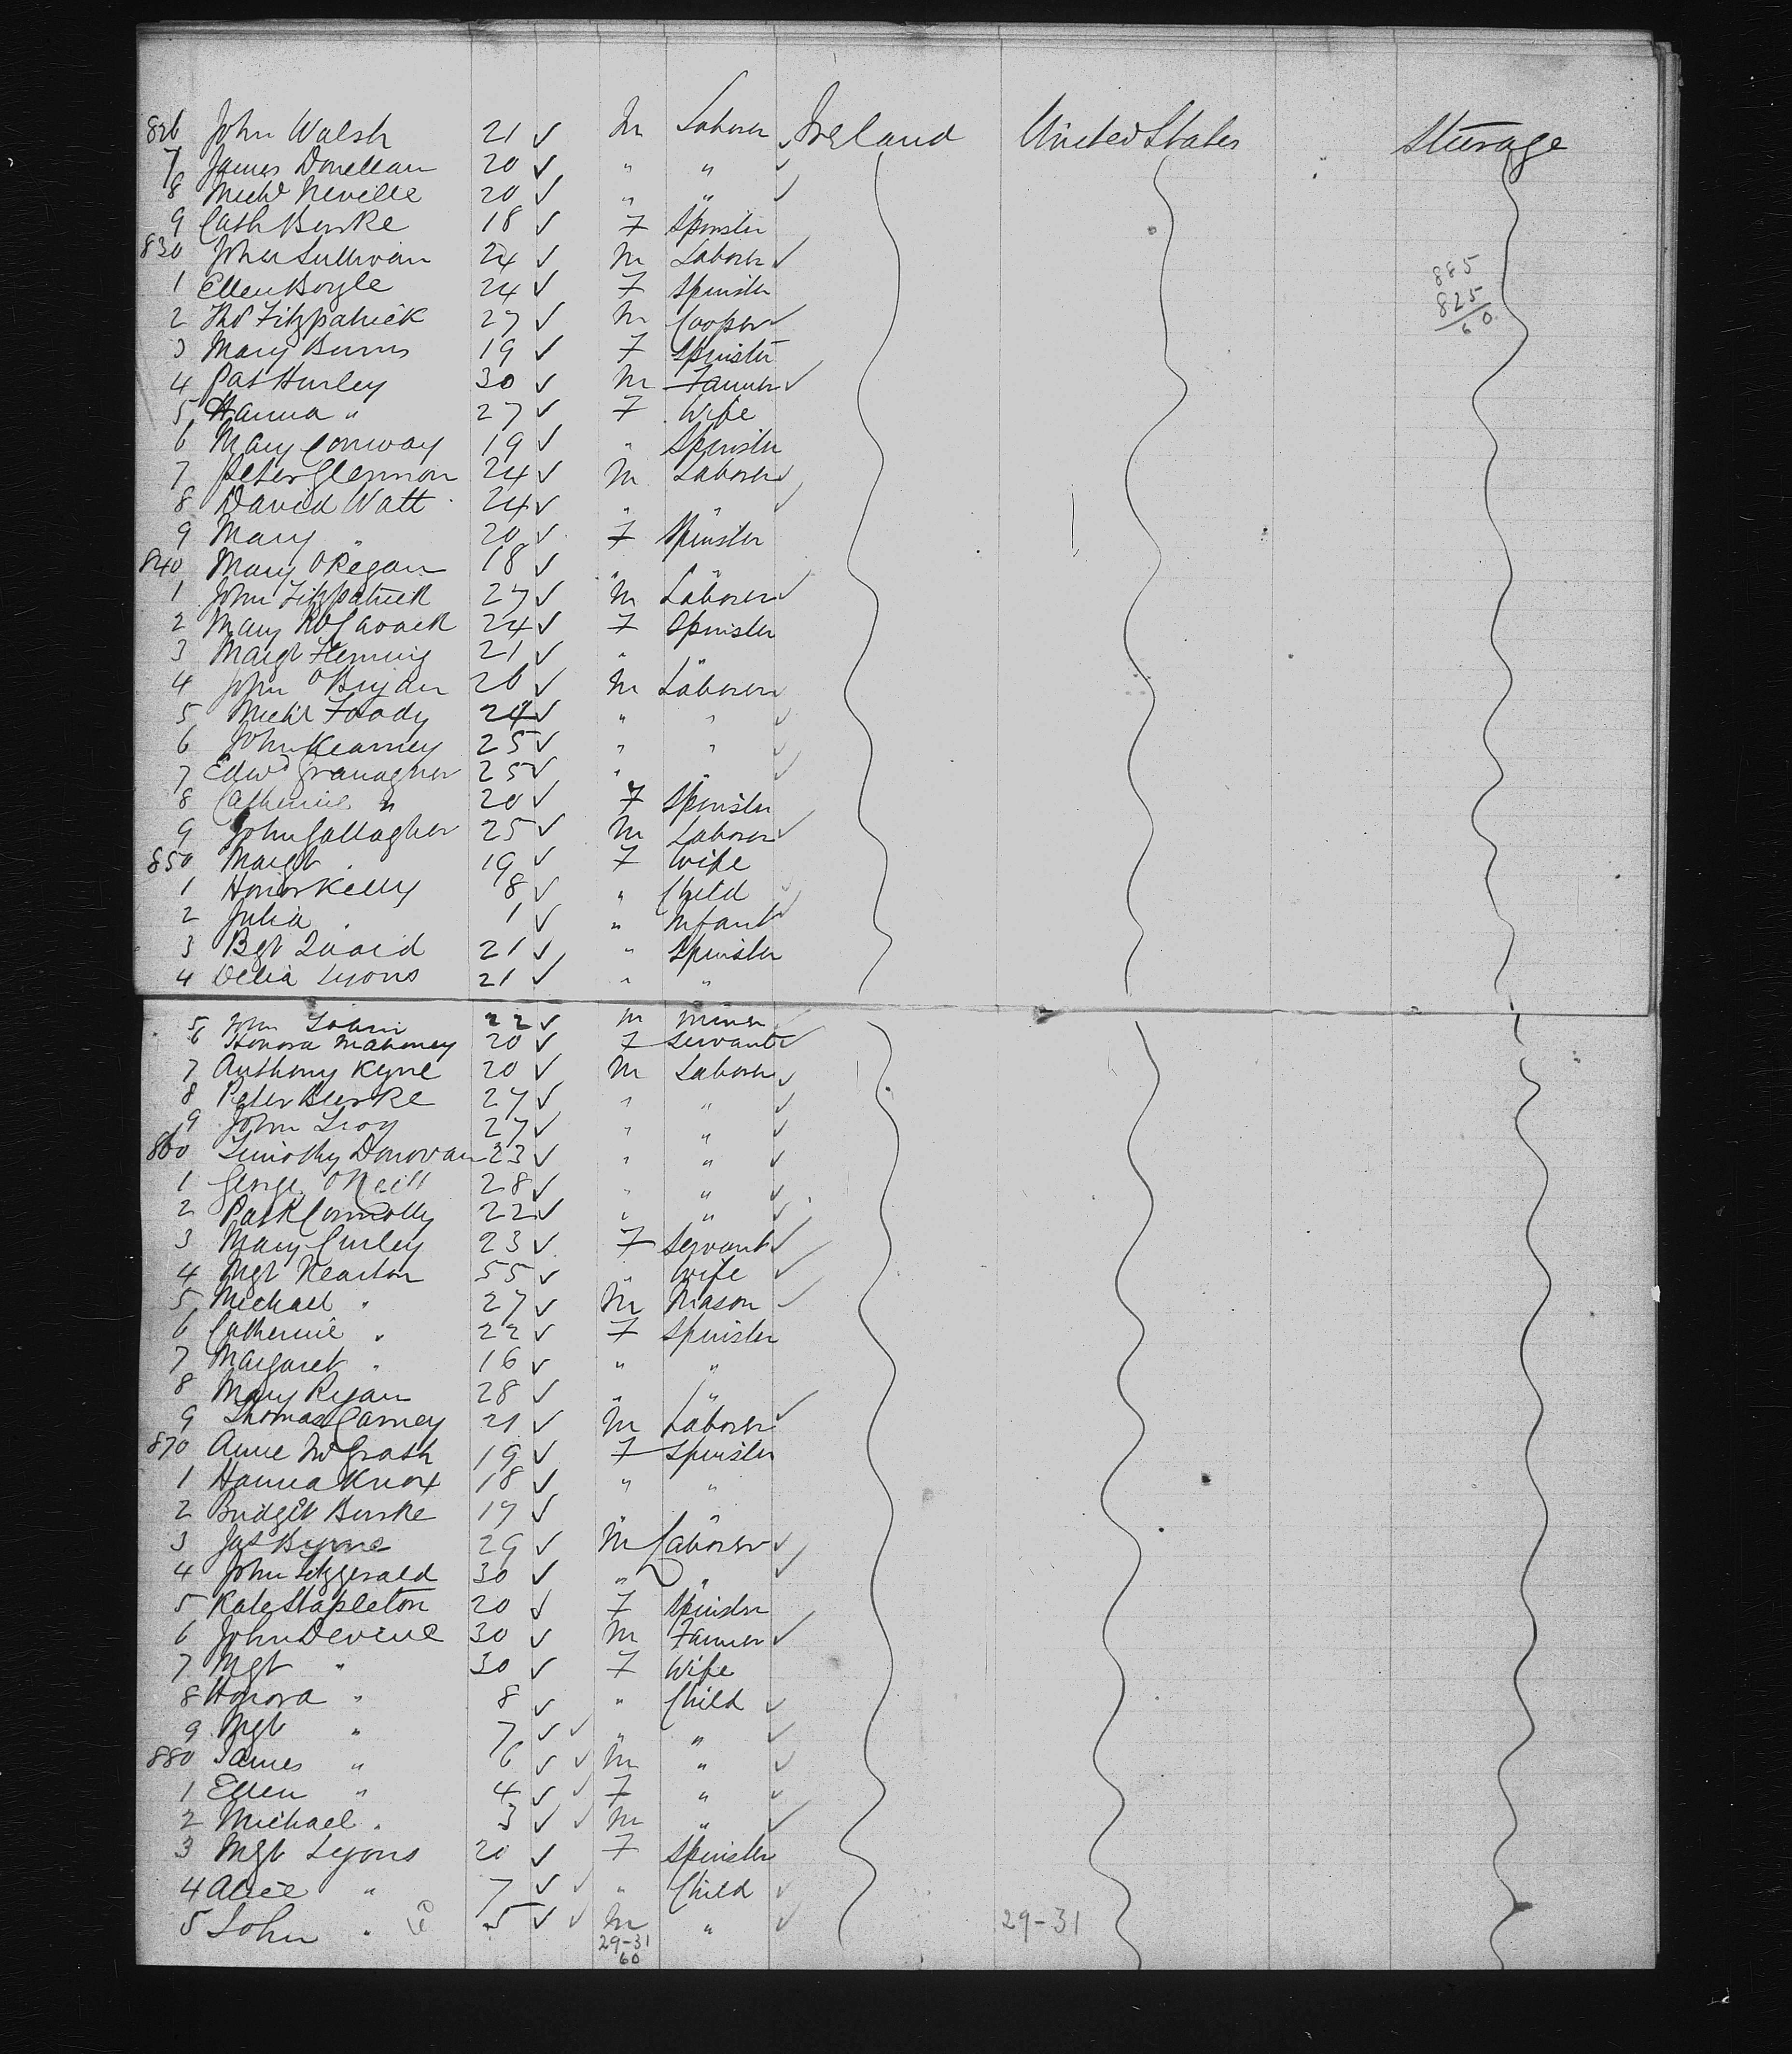 826 John Walsh 21 ✓ M Laborer ✓ Ireland United States Steerage
7 James Donellan 20 ✓ " " ✓
8 Michl Neville 20 ✓ " " ✓
9 Cath Burke 18 ✓ F Spinster
830 John Sullivan 24 ✓ M Laborer ✓
1 Ellen Boyle 24 ✓ F Spinster 885
2 Thos Fitzpatrick 27 ✓ M Cooper ✓ 825
3 Mary Burns 19 ✓ F Spinster 60
4 Pat Hurley 30 ✓ M Farmer ✓
5 Hanna " 27 ✓ F Wife
6 Mary Conway 19 ✓ " Spinster
7 Peter Glennon 24 ✓ M Laborer ✓
8 David Watt 24 ✓ " " ✓
9 Mary " 20 ✓ F Spinster
840 Mary O'Regan 18 ✓ " "
1 John Fitzpatrick 27 ✓ M Laborer ✓
2 Mary 24 ✓ F Spinster
3 Margt Fleming 21 ✓ " "
4 John O'Bryan 26 ✓ M Laborer ✓
5 Michl Foody 24 ✓ " " ✓
6 John Kearney 25 ✓ " " ✓
7 Edwd Granagher 25 ✓ " " ✓
8 Catherine " 20 ✓ F Spinster
9 John Gallagher 25 ✓ M Laborer ✓
850 Margt " 19 ✓ F Wife
1 Honor Kelly 8 ✓ " Child ✓
2 Julia " 1 ✓ " Infant ✓
3 Bgt Quaid 21 ✓ " Spinster
4 Delia Lyons 21 ✓ " "
5 John Tobin 22 ✓ M Miner ✓
6 Honora Mahoney 20 ✓ F Servant ✓
7 Anthony Kyne 20 ✓ M Laborer ✓
8 Peter Burke 27 ✓ " " ✓
9 John Troy 27 ✓ " " ✓
860 Timothy Donovan 23 ✓ " " ✓
1 George O'Neill 28 ✓ " " ✓
2 Patk Connolly 22 ✓ " " ✓
3 Mary Curley 23 ✓ F Servant ✓
4 Mgt Nearton 55 ✓ " Wife ✓
5 Michael " 27 ✓ M Mason ✓
6 Catherine " 22 ✓ F Spinster
7 Margaret " 16 ✓ " "
8 Mary Ryan 28 ✓ " "
9 Thomas Carney 21 ✓ M Laborer ✓
870 Anne McGrath 19 ✓ F Spinster
1 Hanna Knox 18 ✓ " "
2 Bridget Burke 17 ✓ " "
3 Jas Byrne 29 ✓ M Laborer ✓
4 John Fitzgerald 30 ✓ " " ✓
5 Kate Stapleton 20 ✓ F Spinster
6 John Devine 30 ✓ M Farmer ✓
7 Mgt " 30 ✓ F Wife
8 Honora " 8 ✓ " Child ✓
9 Mgt " 7 ✓ ✓ " " ✓
880 James " 6 ✓ ✓ M " ✓
1 Ellen " 4 ✓ ✓ F " ✓
2 Michael " 3 ✓ ✓ M " ✓
3 Mgt Lyons 20 ✓ F Spinster
4 Alice " 7 ✓ ✓ " Child ✓
5 John " 5 ✓ ✓ M " ✓ 29-31
29-31
60